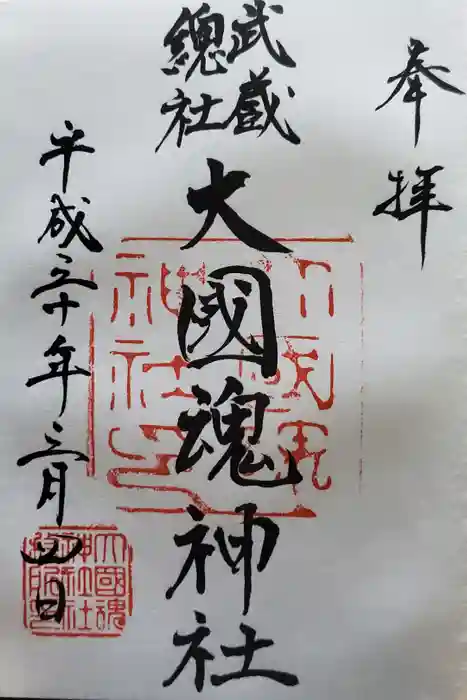 奉拝
武蔵
總社
大國魂神社
平成三十年三月四日
大國魂
神社社
務所